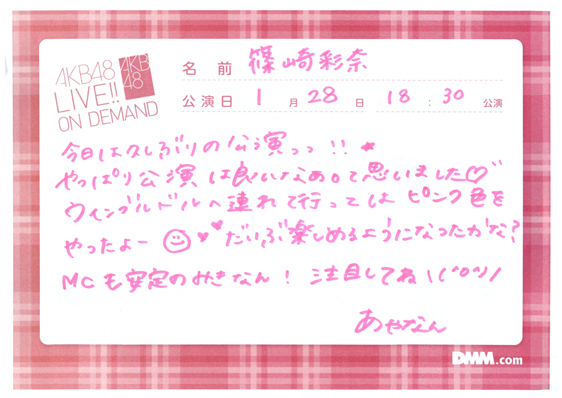 AKB48
LIVE!!
ON DEMAND
AKB
48
名 前 篠崎彩奈
公演日 1 月 28 日 18 : 30 公演
今日は久しぶりの公演っっ!!★
やっぱり公演は良いなぁ。て思いました♡
ウィンブルドルへ連れて行ってはピンク色を
やったよー ☺♥♥ だいぶ楽しめるようになったかな?
MCも安定のみきなん! 注目してね\(^o^)/
あやなん
DMM.com